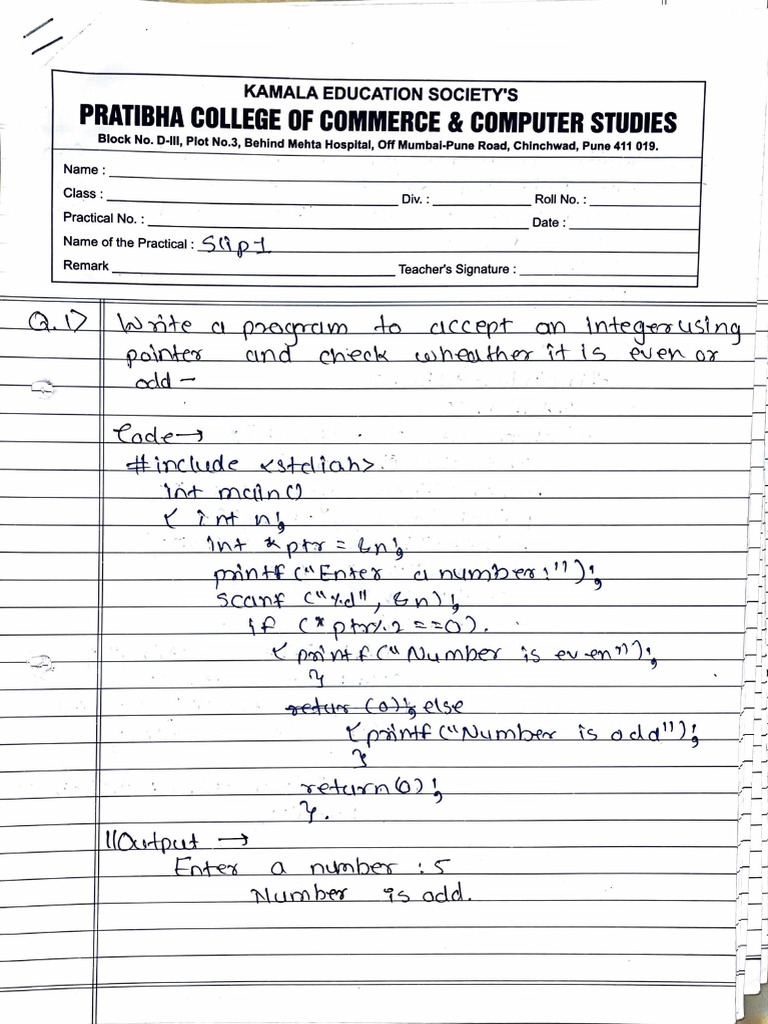 KAMALA EDUCATION SOCIETY'S
PRATIBHA COLLEGE OF COMMERCE & COMPUTER STUDIES
Block No. D-III, Plot No.3, Behind Mehta Hospital, Off Mumbai-Pune Road, Chinchwad, Pune 411 019.
Name :
Class : Div. : Roll No. :
Practical No. : Date :
Name of the Practical : Slip 1
Remark Teacher's Signature :
Q.1> Write a program to accept an integer using
pointer and check wheather it is even or
odd -
Code →
#include <stdioh>
int main()
{ int n;
int *ptr = &n;
printf ("Enter a number:");
scanf ("%d", &n);
if (*ptr%2 ==0).
{ printf ("Number is even");
}
retur (0); else
{ printf ("Number is odd");
}
return(0);
}.
//Output →
Enter a number : 5
Number is odd.